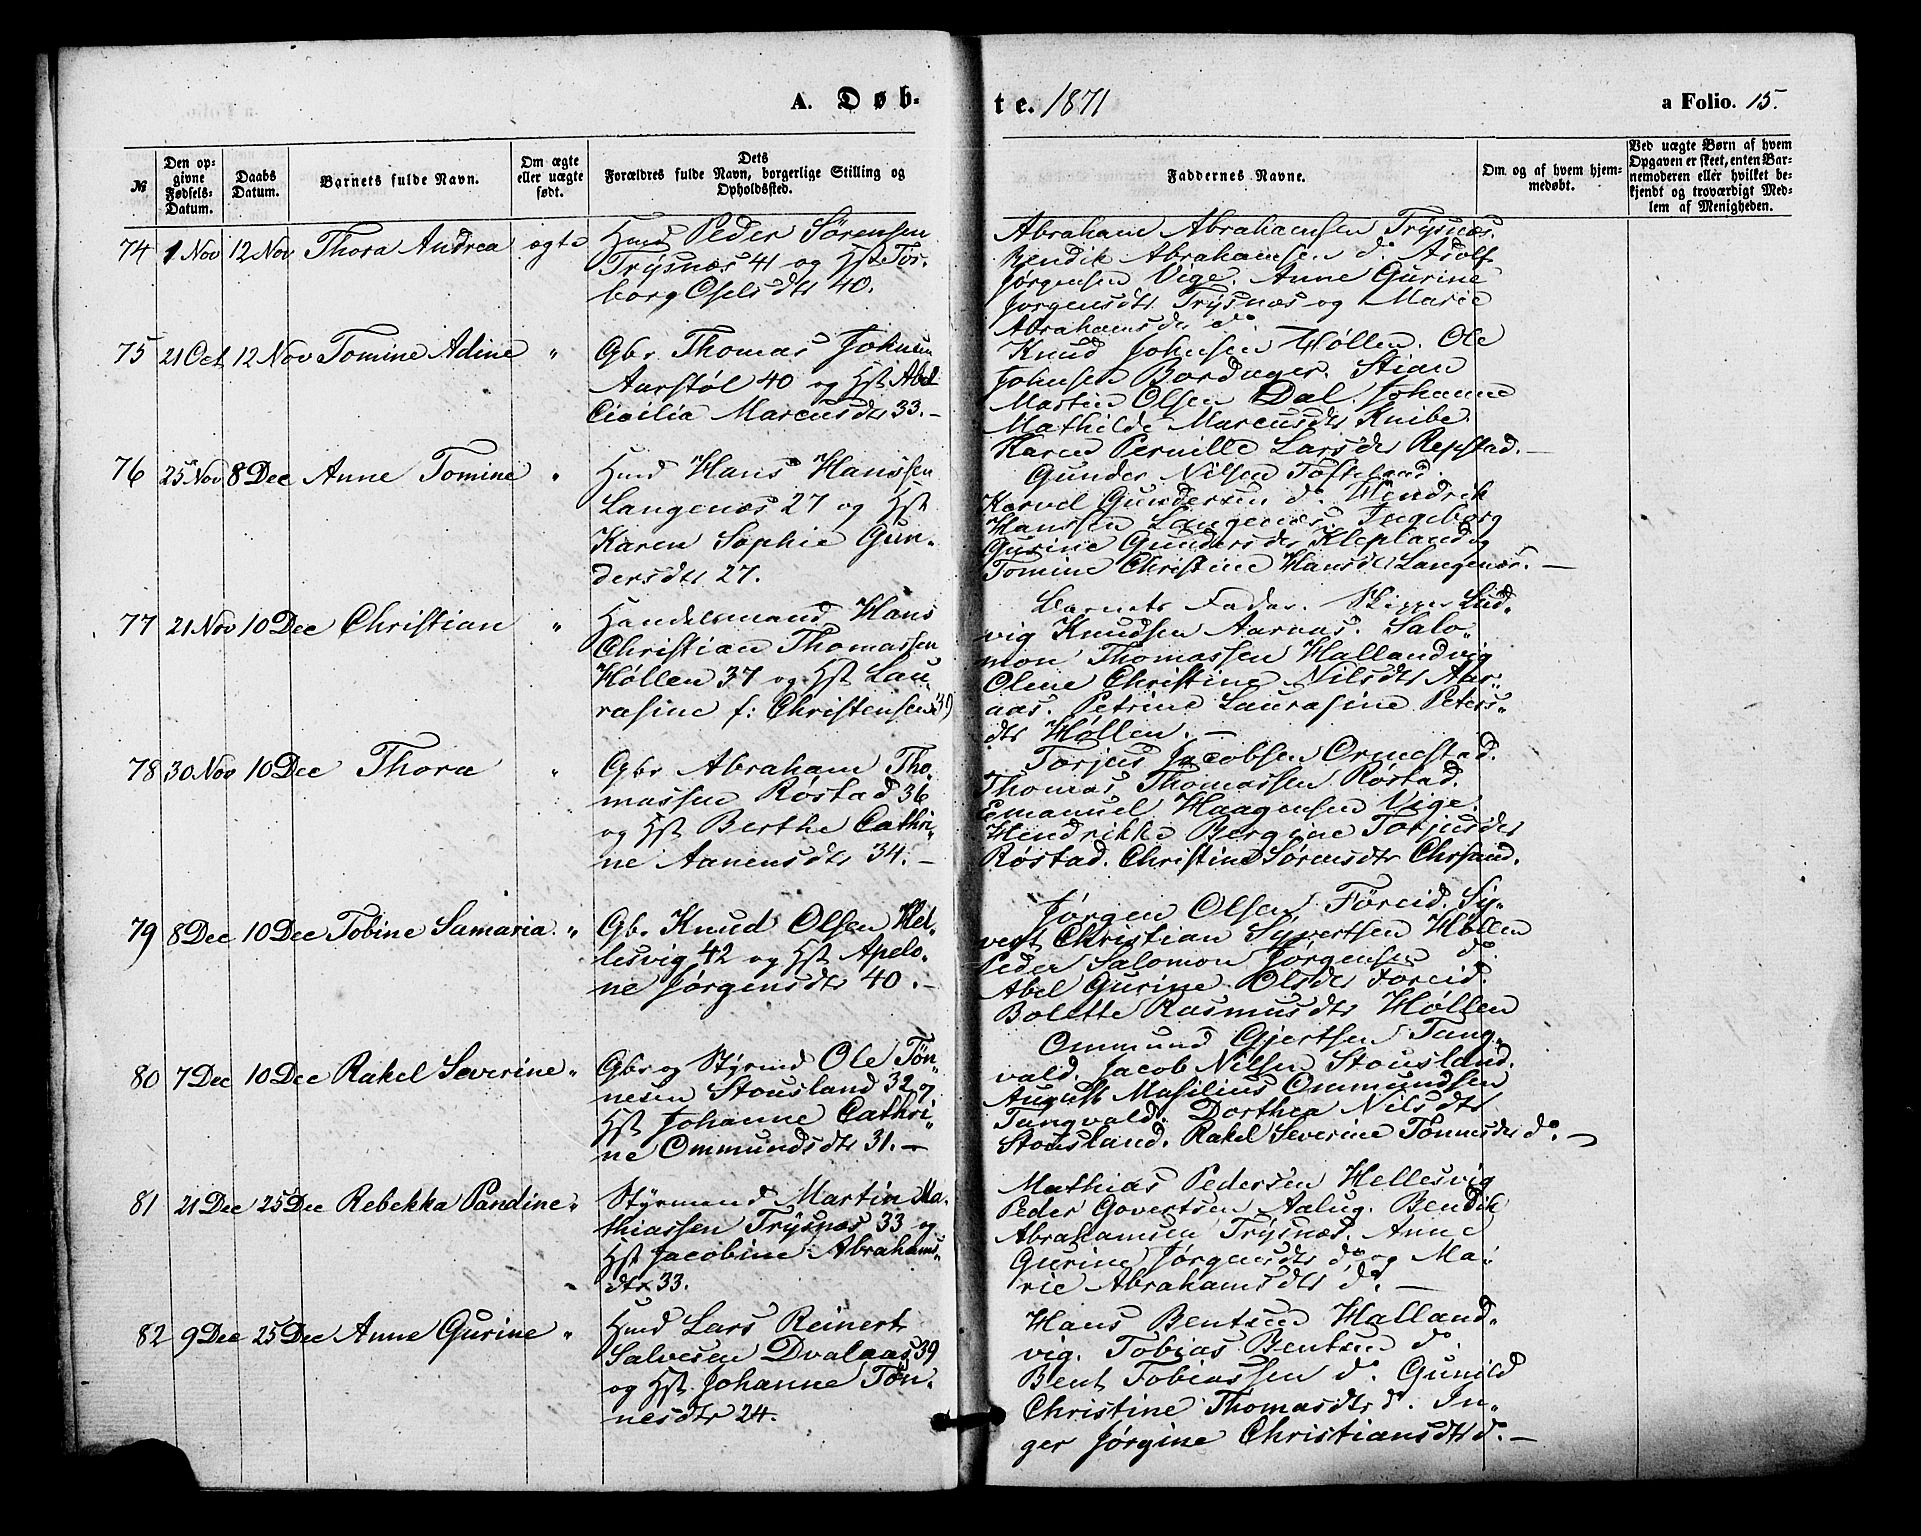 A. Døb-
te. 1871
a Folio. 15.
№
Den op-
givne
Fødsels-
Datum.
Daabs
Datum.
Barnets fulde Navn.
Om ægte
eller uægte
født.
Dets
Forældres fulde Navn, borgerlige Stilling og
Opholdssted.
Faddernes Navne.
Om og af hvem hjem-
medøbt.
Ved uægte Børn af hvem
Opgaven er skeet, enten Bar-
nemoderen eller hvilket be-
kjendt og troværdigt Med-
lem af Menigheden.
74 1 Nov 12 Nov Thora Andrea ægte
Hmd Peder Sørensen
Trysnæs 41 og Hst Tor-
borg Oselsdtr 40.
Abraham Abrahamsen Trysnæs.
Bendik Abrahamsen do. Adolf
Jørgensen Vige. Anne Gurine
Jørgensdtr Trysnæs og Marie
Abrahamsdtr do.
75 21 Oct 12 Nov Tomine Adine "
Gbr. Thomas Johnsen
Aarstøl 40 og Hst Abel
Cicilia Marcusdtr 33.-
Knud Johnsen Høllen. Ole
Johnsen Bordager. Stian
Martin Olsen Dal. Johanne
Mathilde Marcusdtr Knibe.
Karen Pernille Larsdtr Repstad.-
76 25 Nov 8 Dec Anne Tomine "
Hmd Hans Hanssen
Langenæs 27 og Hst
Karen Sophie Gun-
dersdtr 27.
Gunder Nilsen Tofteland.
Korvel Gundersen do. Hendrik
Hanssen Langenæs. Ingeborg
Gurine Gundersdtr Klepland og
Tomine Christine Hansdtr Langenæs.-
77 21 Nov 10 Dec Christian "
Handelsmand Hans
Christian Thomassen
Høllen 37 og Hst Lau-
rasine f: Christensen 39
Barnets Fader. Skipper Lud-
vig Knudsen Aaraas. Salo-
mon Thomassen Hallandvig
Olene Christine Nilsdtr Aar-
aas. Petrine Laurasine Peters-
dtr Høllen.-
78 30 Nov 10 Dec Thora "
Gbr Abraham Tho-
massen Røstad 36
og Hst Berthe Cathri-
ne Aanensdtr 34.-
Torjus Jacobsen Ormestad.
Thomas Thomassen Røstad.
Emanuel Haagensen Vige.
Hendrikke Bergine Torjusdtr
Røstad. Christine Sørensdtr Chrsand.
79 8 Dec 10 Dec Tobine Samaria. "
Gbr. Knud Olsen Hel-
lesvig 42 og Hst Apelo-
ne Jørgensdtr 40.-
Jørgen Olsen Føreid. Sy-
vert Christian Syvertsen Høllen
Peder Salomon Jørgensen do.
Abel Gurine Olsdtr Føreid.
Bolette Rasmusdtr Høllen
80 7 Dec 10 Dec Rakel Severine "
Gbr og Styrmd Ole Tøn-
nesen Stousland 32 og
Hst Johanne Cathri-
ne Ommundsdtr 31.-
Ommund Gjertsen Tang-
vald. Jacob Nilsen Stousland.
August Masilius Ommundsen
Tangvald. Dorthea Nilsdtr
Stousland. Rakel Severine Tønnesdtr do.-
81 21 Dec 25 Dec Rebekka Pandine "
Styrmand Martin Ma-
thiassen Trysnæs 33 og
Hst Jacobine Abrahams-
dtr 33.
Mathias Pedersen Hellesvig
Peder Govertsen Aalug. Bendik
Abrahamsen Trysnæs. Anne
Gurine Jørgensdtr do og Ma-
rie Abrahamsdtr do.-
82 9 Dec 25 Dec Anne Gurine "
Hmd Lars Reinert
Salvesen Dvalaas 39
og Hst Johanne Tøn-
nesdtr 24.
Hans Bentsen Halland-
vig. Tobias Bentsen do.
Bent Tobiassen do. Gunild
Christine Thomasdtr do. In-
ger Jørgine Christiansdtr do.-